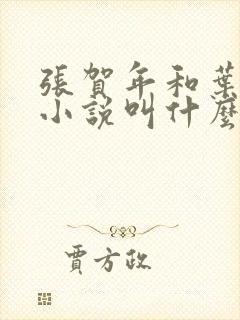 張賀年和葉
小説叫什麼
賈方政